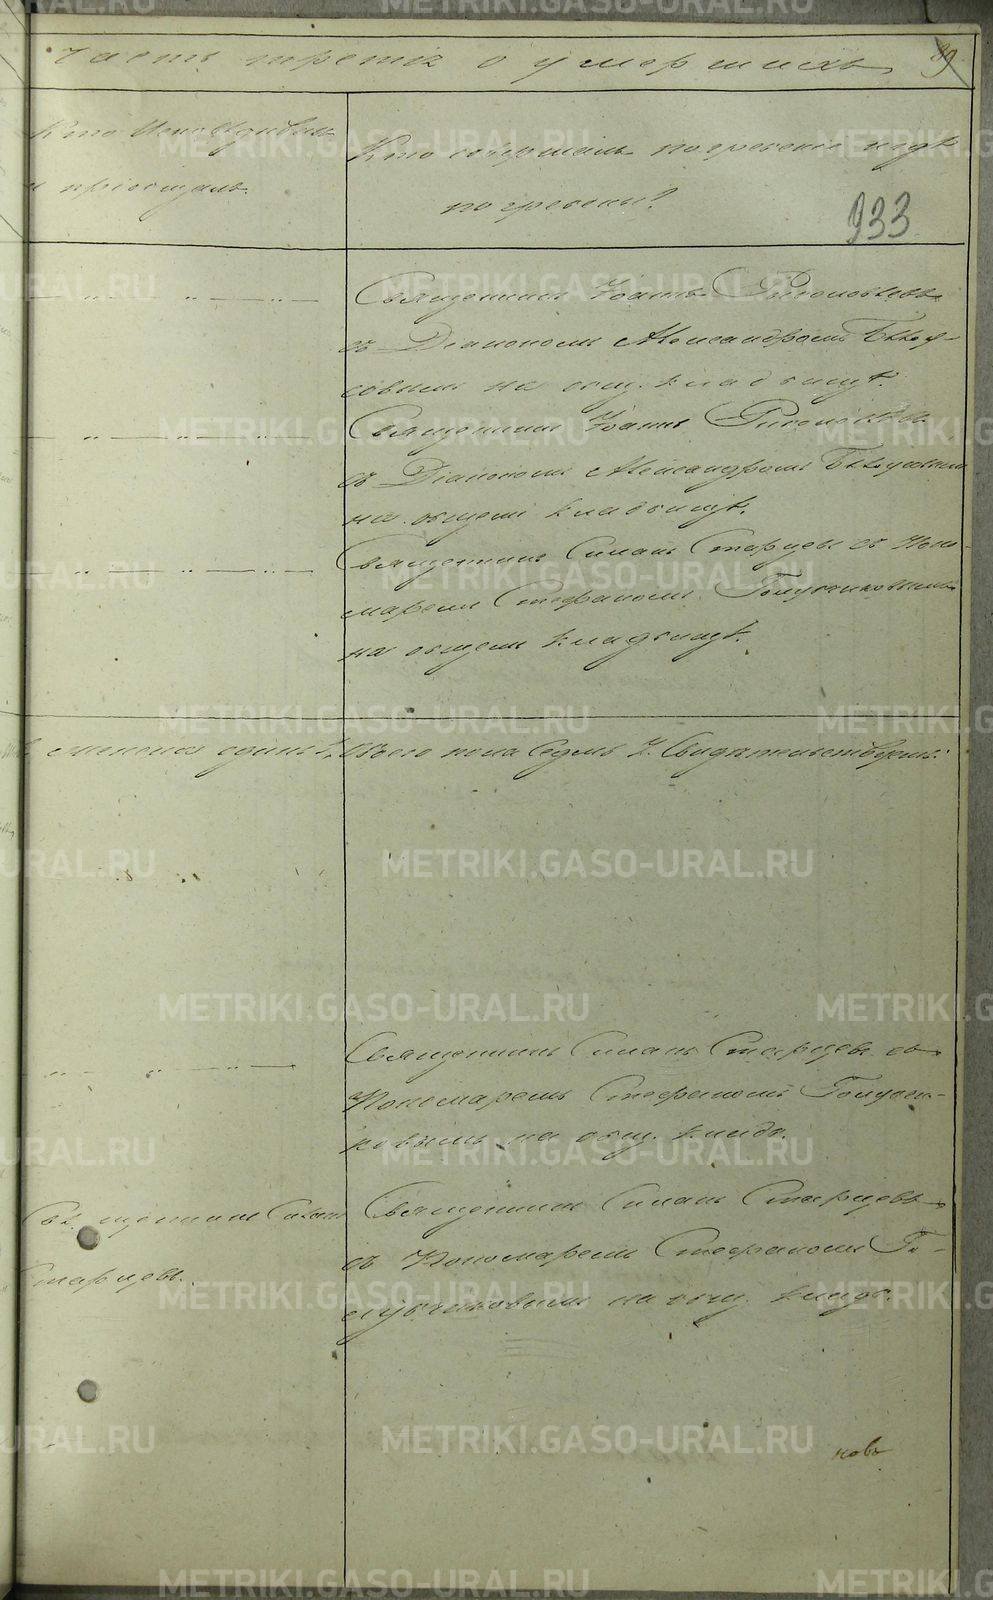 часть третія о умершихъ
89
Кто Исповѣдывалъ
и пріобщалъ.
Кто совершалъ погребеніе и гдѣ
погребены?
933
Священникъ Іоаннъ
съ Діакономъ Александромъ Бѣлоу-
совымъ на общ. кладбищѣ.
Священникъ Іоаннъ
съ Діакономъ Александромъ Бѣлоусовымъ
на общемъ кладбищѣ.
Священникъ Симонъ Старцевъ съ Поно-
маремъ Стефаномъ Голубчиковымъ
на общемъ кладбищѣ.
женска одинъ 1, Обоего пола Седмь 7. Свидѣтельствуемъ:
Священникъ Симонъ Старцевъ съ
Пономаремъ Стефаномъ Голубчи-
ковымъ на общ. кладб.
Священникъ Симонъ
Старцевъ.
Священникъ Симонъ Старцевъ
съ Пономаремъ Стефаномъ Го-
лубчиковымъ на общ. кладб.
новъ
METRIKI.GASO-URAL.RU